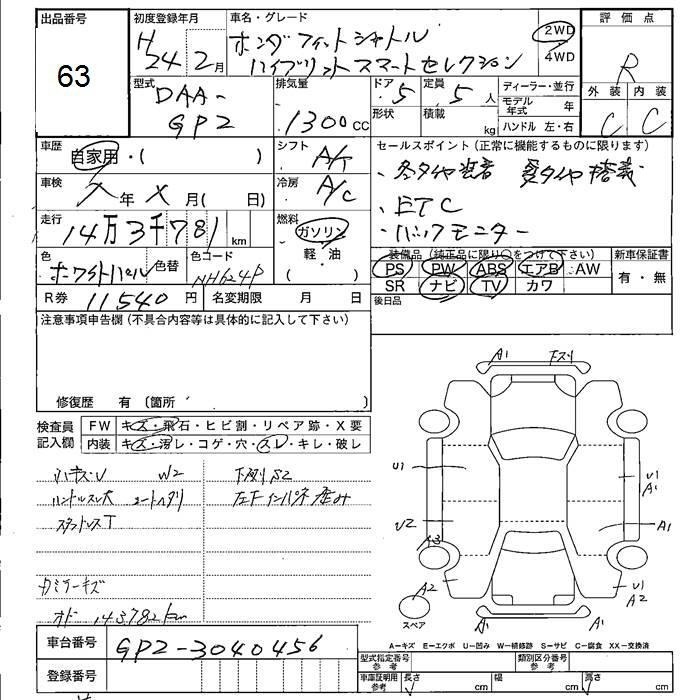 出品番号 初度登録年月 車名・グレード 評価点
63 H24年2月 ホンダ フィットシャトル 2WD R
ハイブリットスマートセレクション 4WD
型式 排気量 ドア 定員 ディーラー・並行 外装 内装
DAA- 5 5人 モデル年式 年 C C
GP2 1300cc 形状 積載 kg ハンドル 左・右
車歴 自家用・( ) シフト A/T セールスポイント(正常に機能するものに限ります)
・冬タイヤ装着 夏タイヤ搭載
車検 年 X月( 日) 冷房 A/C
・ETC
走行 14万3千781km 燃料 ガソリン
軽・油
( )
・バックモニター
色 ホワイトパール 色替 色コード NH624P
装備品(純正品に限り○をつけて下さい) 新車保証書
PS PW ABS エアB AW 有・無
SR ナビ TV カワ
R券 11540円 名変期限 月 日 後日品
注意事項申告欄(不具合内容等は具体的に記入して下さい)
修復歴 有(箇所 )
検査員記入欄 FW キズ・飛石・ヒビ割・リペア跡・X要
内装 キズ・汚レ・コゲ・穴・スレ・キレ・破レ
小キズ・U W2 下廻りS2
ハンドルスレ大 シートヘタリ
オド 143782km
A1 下スリ
U1 U1
A1
U2 A1
A3
A2 U1
A2
A1 A1
スペア
A=キズ E=エクボ U=凹み W=補修跡 S=サビ C=腐食 XX=交換済
車台番号 GP2-3040456
型式指定番号 参考 類別区分番号 参考
登録番号 車庫証明用 参考 長さ cm 幅 cm 高さ cm